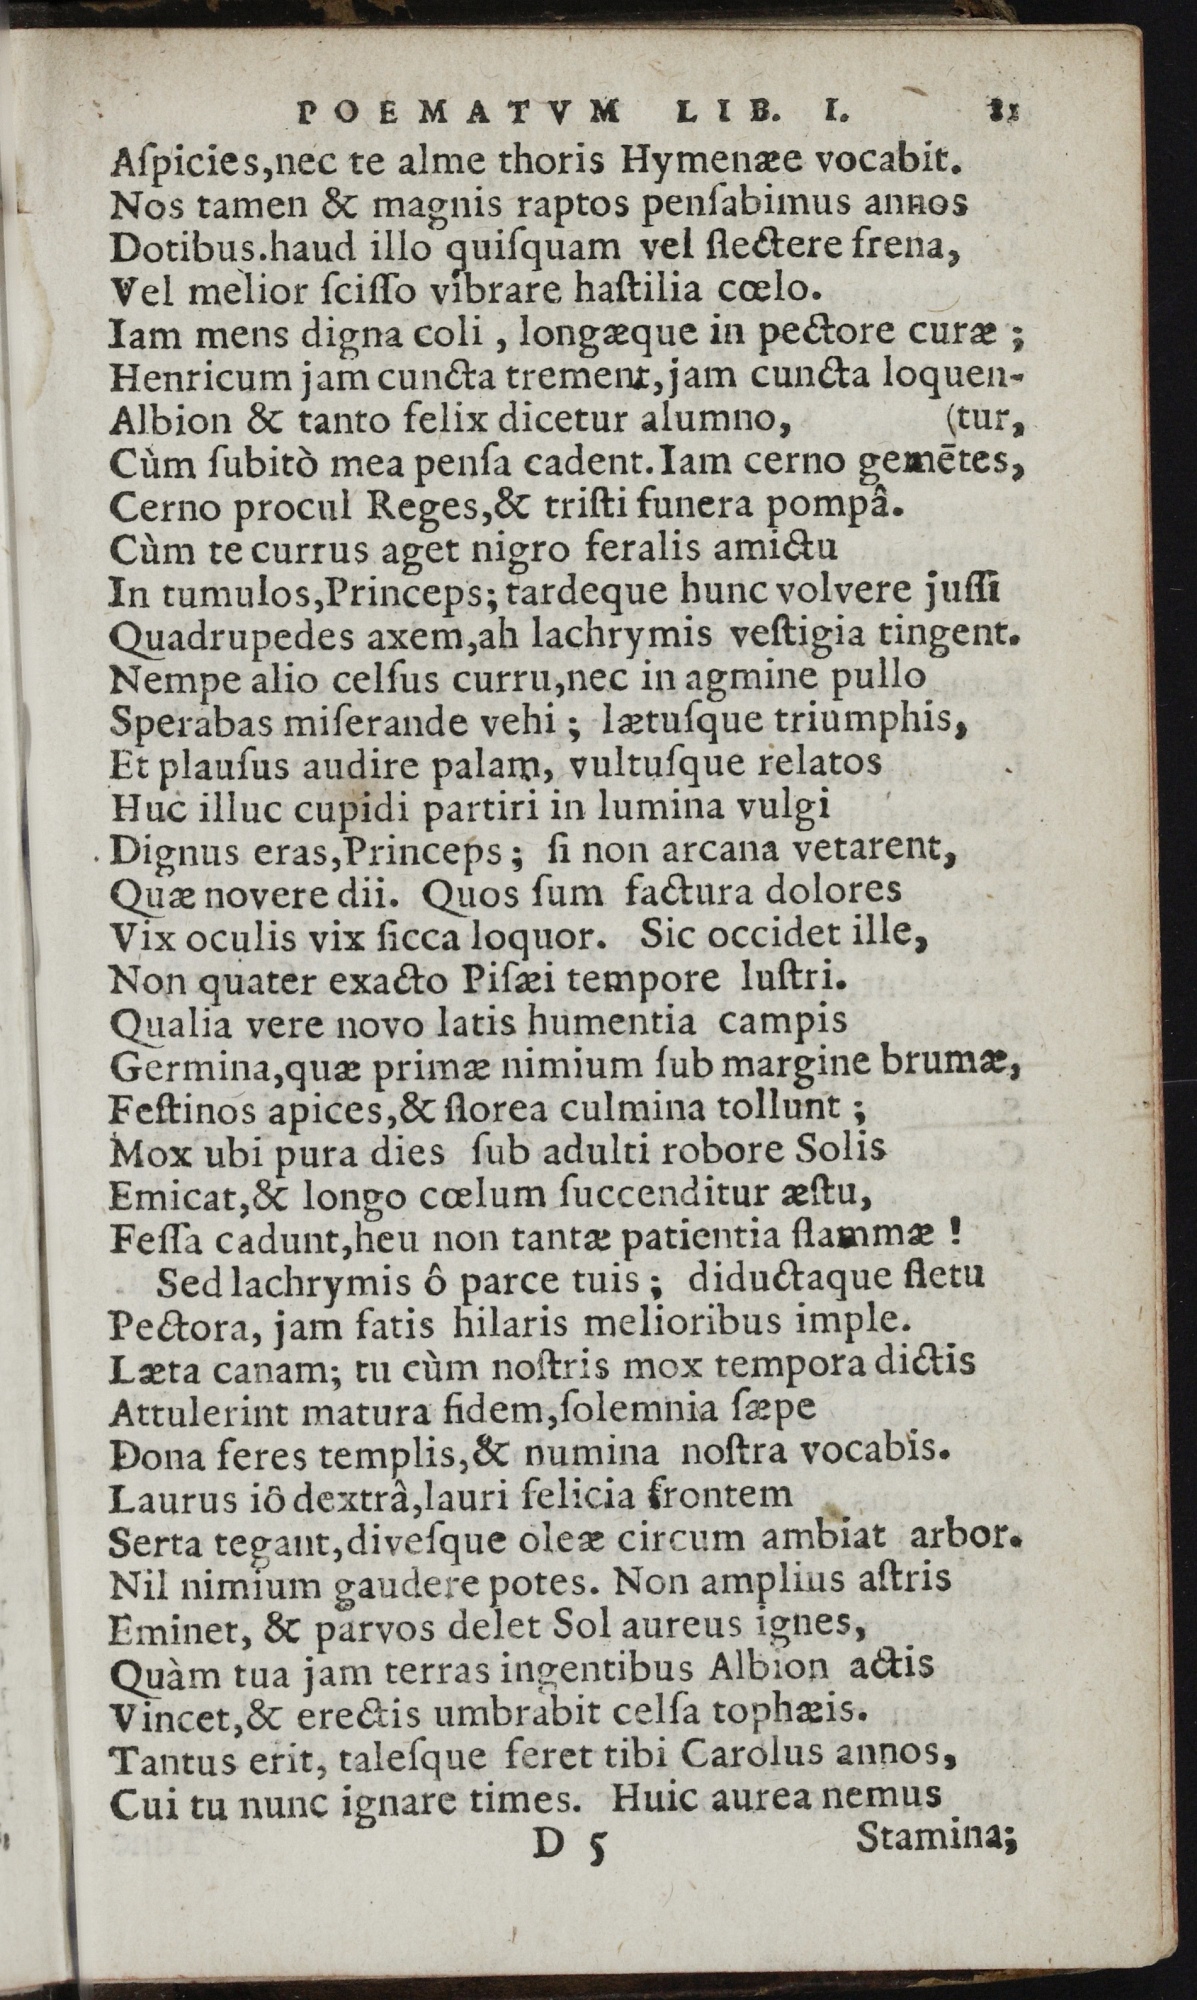 POEMATVM LIB. I. 81
Aſpicies,nec te alme thoris Hymenæe vocabit.
Nos tamen & magnis raptos penſabimus annos
Dotibus.haud illo quiſquam vel flectere frena,
Vel melior ſciſſo vibrare haſtilia cœlo.
Iam mens digna coli , longæque in pectore curæ ;
Henricum jam cuncta trement,jam cuncta loquen-
Albion & tanto felix dicetur alumno, (tur,
Cùm ſubitò mea penſa cadent.Iam cerno gemētes,
Cerno procul Reges,& triſti funera pompâ.
Cùm te currus aget nigro feralis amictu
In tumulos,Princeps; tardeque hunc volvere juſſi
Quadrupedes axem,ah lachrymis veſtigia tingent.
Nempe alio celſus curru,nec in agmine pullo
Sperabas miſerande vehi ; lætuſque triumphis,
Et plauſus audire palam, vultuſque relatos
Huc illuc cupidi partiri in lumina vulgi
Dignus eras,Princeps ; ſi non arcana vetarent,
Quæ novere dii. Quos ſum factura dolores
Vix oculis vix ſicca loquor. Sic occidet ille,
Non quater exacto Piſæi tempore luſtri.
Qualia vere novo latis humentia campis
Germina,quæ primæ nimium ſub margine brumæ,
Feſtinos apices,& florea culmina tollunt ;
Mox ubi pura dies ſub adulti robore Solis
Emicat,& longo cœlum ſuccenditur æſtu,
Feſſa cadunt,heu non tantæ patientia flammæ !
Sed lachrymis ô parce tuis ; diductaque fletu
Pectora, jam fatis hilaris melioribus imple.
Læta canam; tu cùm noſtris mox tempora dictis
Attulerint matura fidem,ſolemnia ſæpe
Dona feres templis,& numina noſtra vocabis.
Laurus iô dextrâ,lauri felicia frontem
Serta tegant,diveſque oleæ circum ambiat arbor.
Nil nimium gaudere potes. Non amplius aſtris
Eminet, & parvos delet Sol aureus ignes,
Quàm tua jam terras ingentibus Albion actis
Vincet,& erectis umbrabit celſa tophæis.
Tantus erit, taleſque feret tibi Carolus annos,
Cui tu nunc ignare times. Huic aurea nemus
D 5 Stamina;